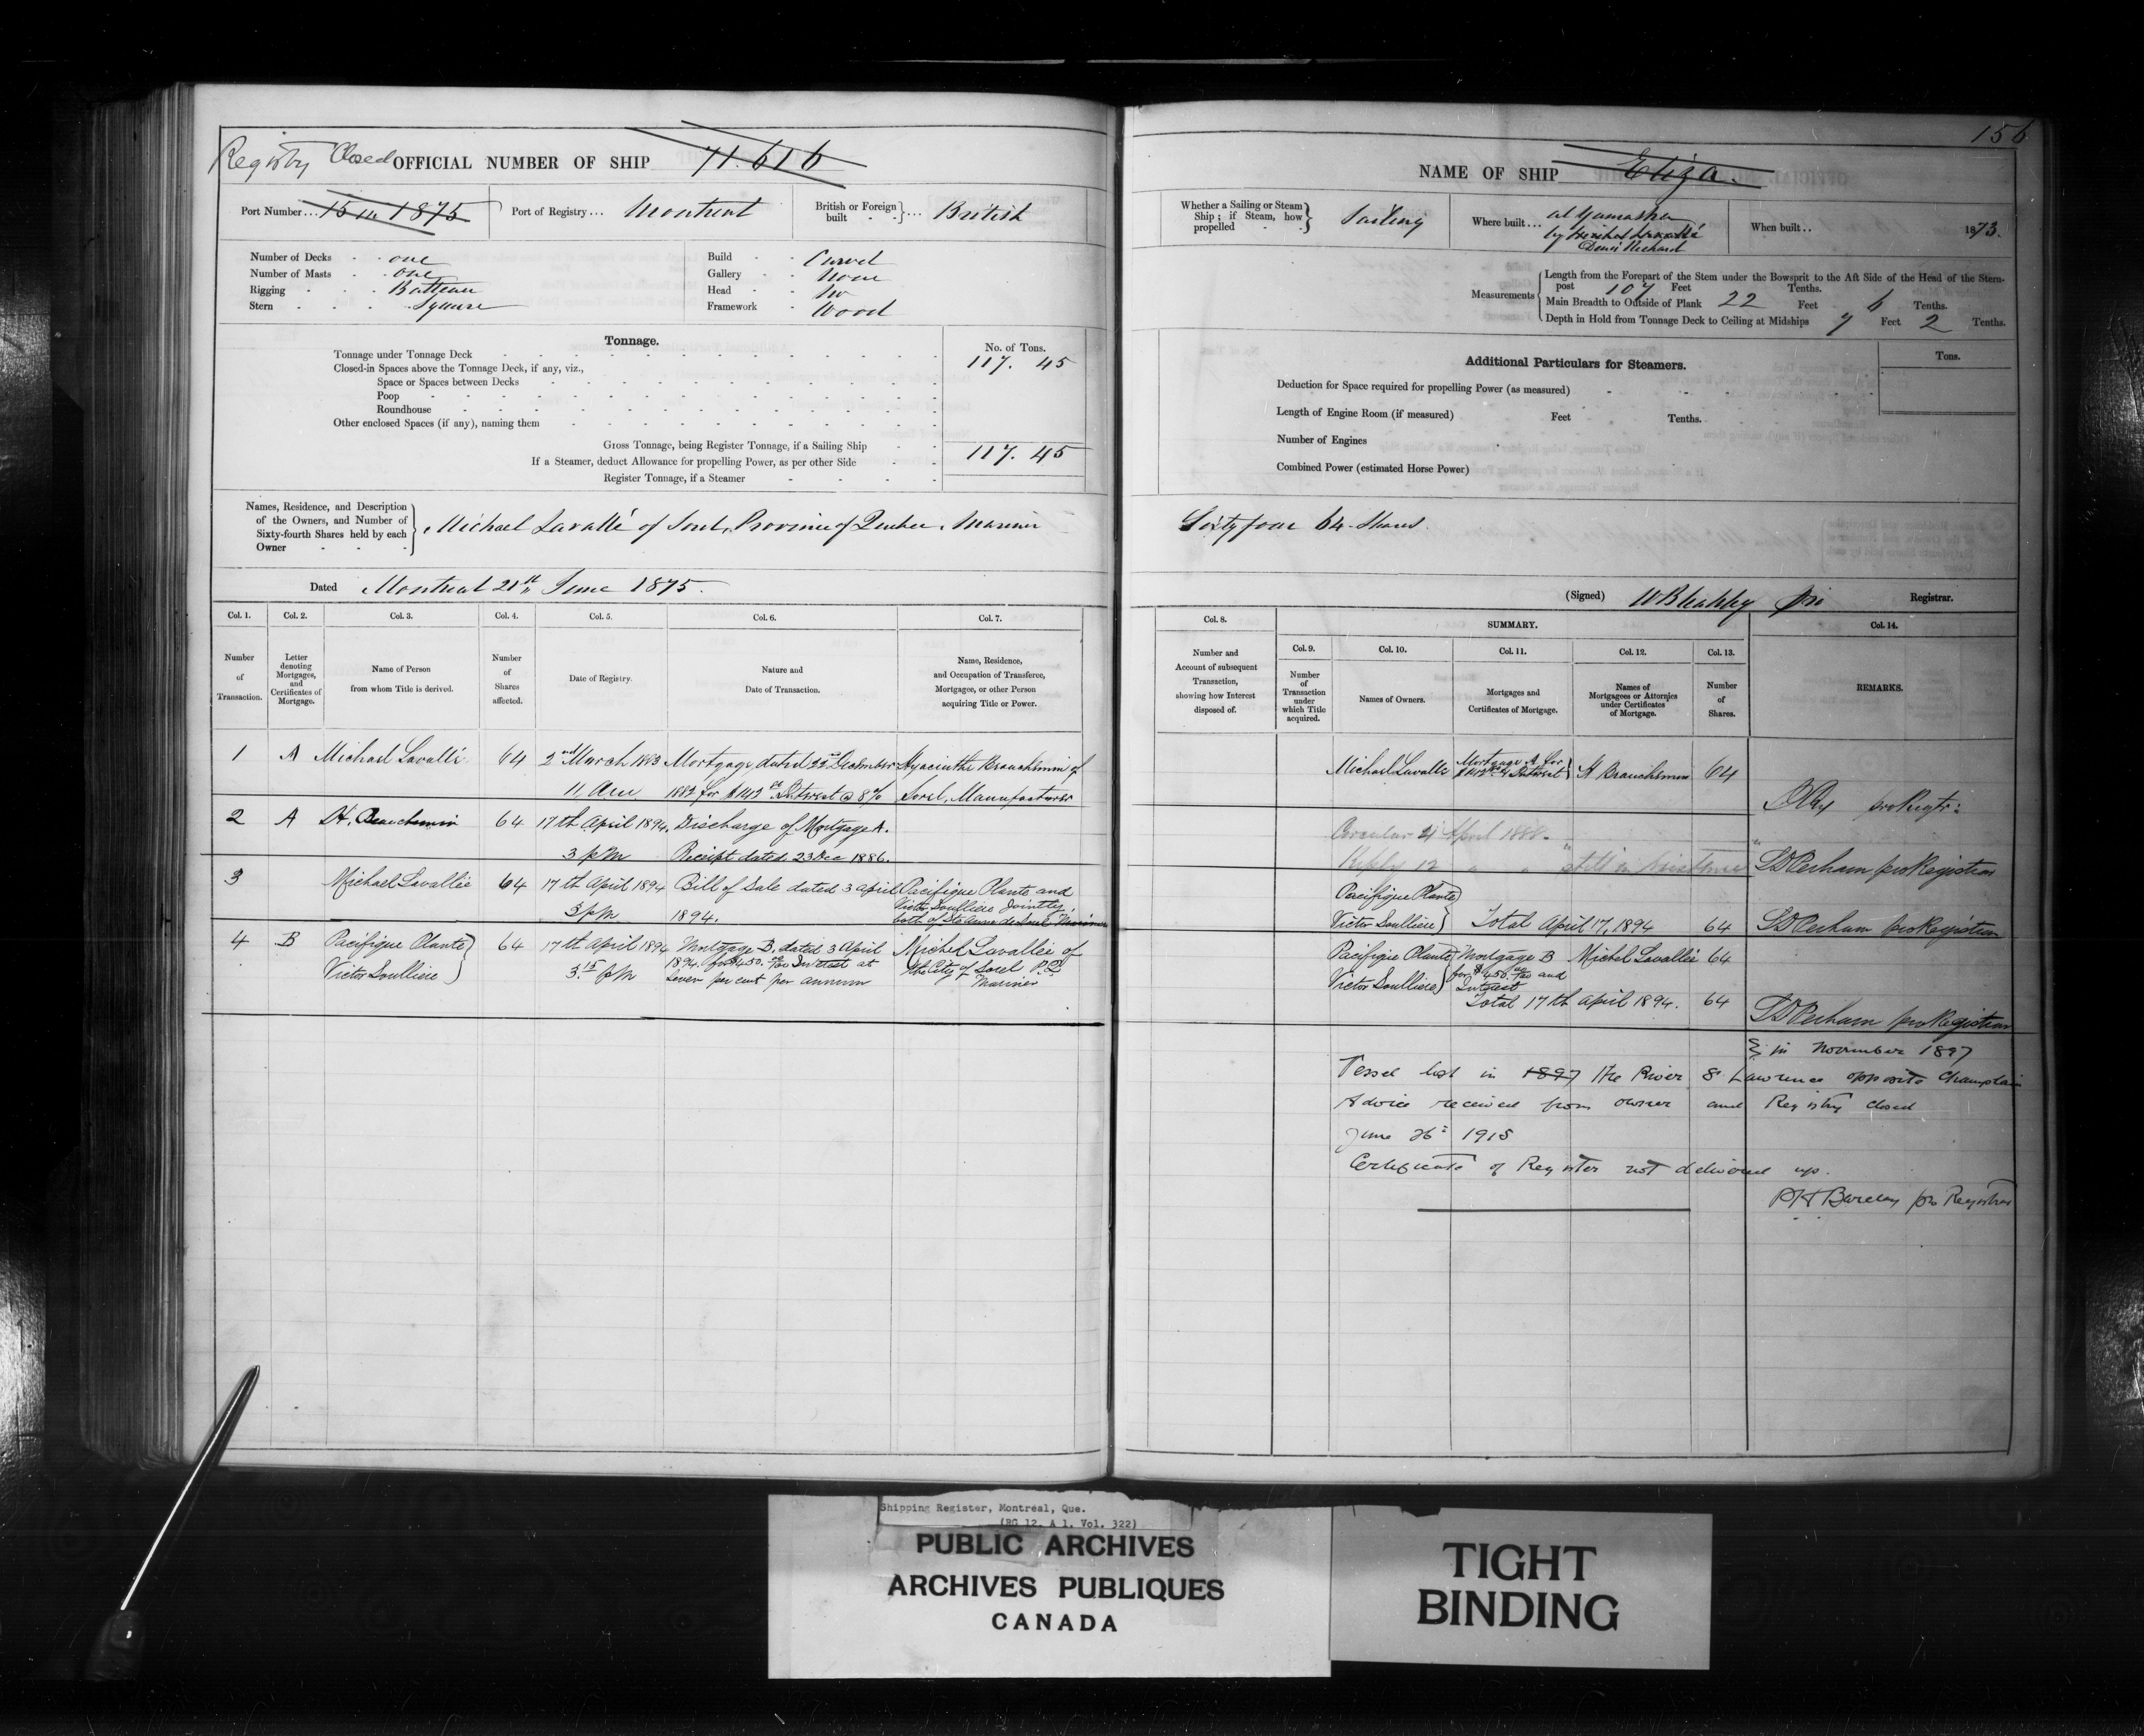 156
Registry Closed OFFICIAL NUMBER OF SHIP 71.616
Port Number... 15 in 1875 Port of Registry... Montreal British or Foreign built - - } ... British
Number of Decks - - one
Number of Masts - - one
Rigging - - - Batteau
Stern - - - - Square
Build - - Carvel
Gallery - None
Head - - No
Framework - Wood
Tonnage.
No. of Tons.
Tonnage under Tonnage Deck 117. 45
Closed-in Spaces above the Tonnage Deck, if any, viz.,
Space or Spaces between Decks
Poop
Roundhouse
Other enclosed Spaces (if any), naming them
Gross Tonnage, being Register Tonnage, if a Sailing Ship 117. 45
If a Steamer, deduct Allowance for propelling Power, as per other Side
Register Tonnage, if a Steamer
Names, Residence, and Description of the Owners, and Number of Sixty-fourth Shares held by each Owner
Michael Lavallé of Sorel, Province of Quebec, Mariner
Dated Montreal 21st June 1875.
Col. 1. Col. 2. Col. 3. Col. 4. Col. 5. Col. 6. Col. 7.
Number of Transaction.
Letter denoting Mortgages, and Certificates of Mortgage.
Name of Person from whom Title is derived.
Number of Shares affected.
Date of Registry.
Nature and Date of Transaction.
Name, Residence, and Occupation of Transferee, Mortgagee, or other Person acquiring Title or Power.
1 A Michael Lavallé 64 2nd March 1883 Mortgage dated 22nd December Hyacinthe Beauchemin of
11 Am 1882 for Interest @ 8% Sorel, Manufacturer
2 A H. Beauchemin 64 17th April 1894. Discharge of Mortgage A.
3 pm Receipt dated 23 Dec 1886.
3 Michael Lavallée 64 17th April 1894 Bill of Sale dated 3 april Pacifique Plante and
3 pm 1894. Victor Soulliere Jointly,
both of Ste Anne de Sorel Mariners
4 B Pacifique Plante 64 17th April 1894 Mortgage B. dated 3 April Michel Lavallée of
Victor Soulliere 3.15 pm 1894. for $450.00 Interest at the City of Sorel P.Q
Seven per cent per annum Mariner
NAME OF SHIP Eliza.
Whether a Sailing or Steam Ship; if Steam, how propelled - - } Sailing
Where built... at Yamaska
by Michel Lavallé
Denis Richard
When built.. 1873.
Measurements
Length from the Forepart of the Stem under the Bowsprit to the Aft Side of the Head of the Stern-
post 107 Feet Tenths.
Main Breadth to Outside of Plank 22 Feet 6 Tenths.
Depth in Hold from Tonnage Deck to Ceiling at Midships 7 Feet 2 Tenths.
Additional Particulars for Steamers.
Tons.
Deduction for Space required for propelling Power (as measured)
Length of Engine Room (if measured) Feet Tenths.
Number of Engines
Combined Power (estimated Horse Power)
Sixty four 64 Shares.
(Signed) Registrar.
Col. 8. SUMMARY. Col. 14.
Col. 9. Col. 10. Col. 11. Col. 12. Col. 13.
Number and Account of subsequent Transaction, showing how Interest disposed of.
Number of Transaction under which Title acquired.
Names of Owners.
Mortgages and Certificates of Mortgage.
Names of Mortgagees or Attornies under Certificates of Mortgage.
Number of Shares.
REMARKS.
Michael Lavallé Mortgage A for H Beauchemin 64
& Interest
Circular 21 April 1888.
Reply 12 " " still in existence
Pacifique Plante
Victor Soulliere Total April 17, 1894 64
Pacifique Plante Mortgage B Michel Lavallée 64
Victor Soulliere for $450.00 and
Interest
Total 17th April 1894. 64
in November 1897
Vessel lost in 1897 the River St Lawrence opposite Champlain
Advice received from owner and Registry closed
June 26th 1915
Certificate of Register not delivered up.
Barclay pro Registrar
Shipping Register, Montreal, Que.
(RG 12, A 1, Vol. 322)
PUBLIC ARCHIVES
ARCHIVES PUBLIQUES
CANADA
TIGHT
BINDING